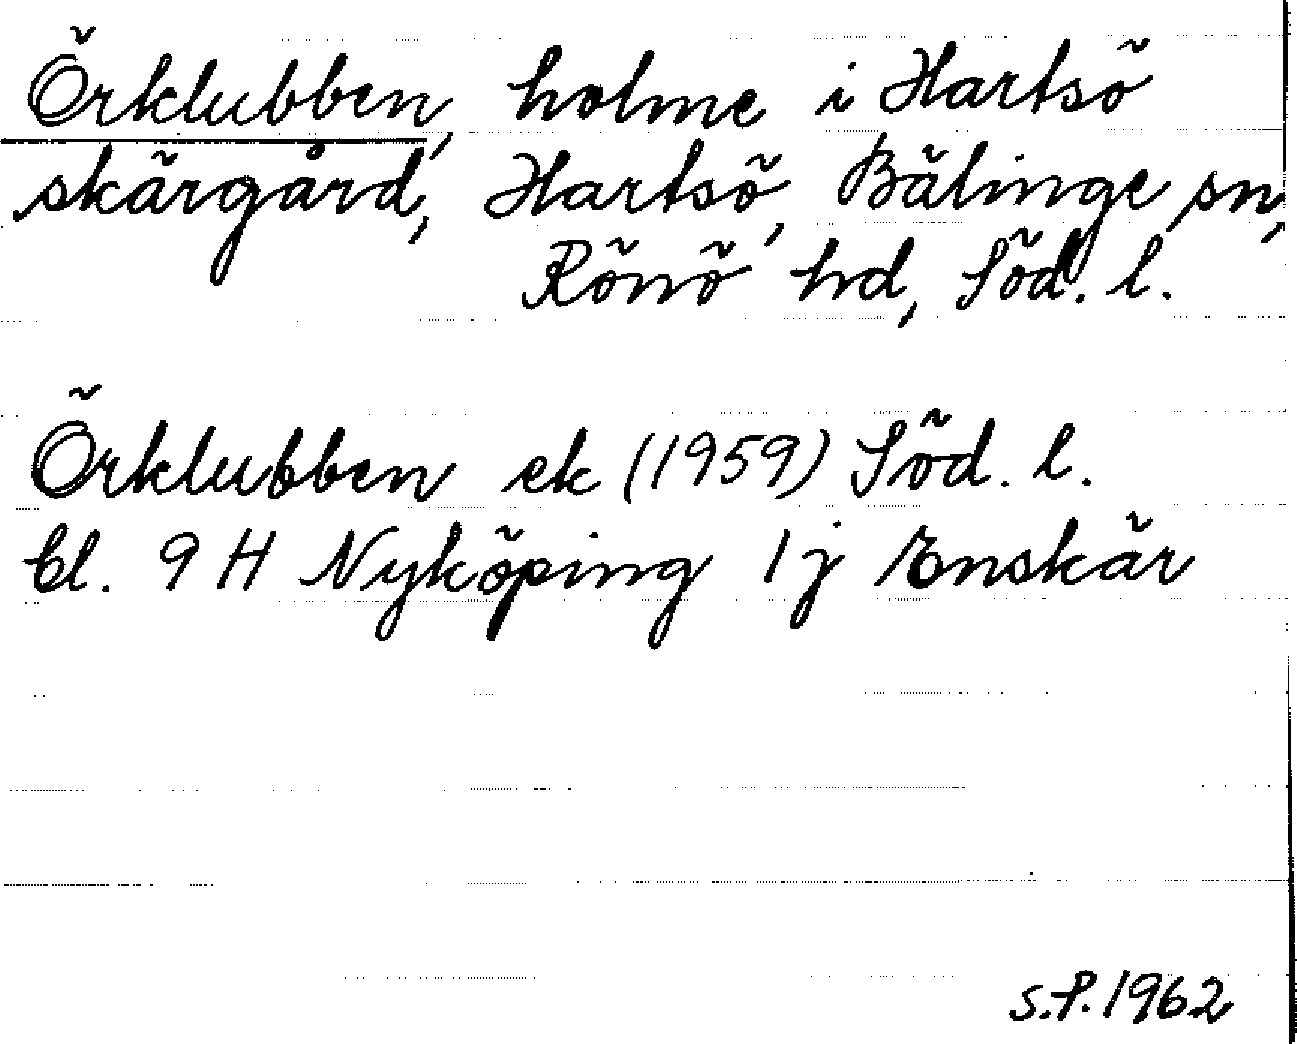 Örklubben, holme i Hartsö
skärgård, Hartsö, Bälinge sn,
Rönö hd, Söd. l.
Örklubben ek (1959) Söd. l.
bl. 9 H Nyköping 1 j Enskär
S.P. 1962